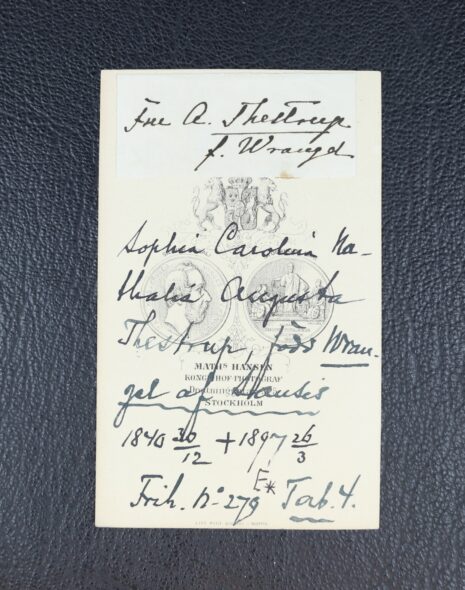 Fru A. Thestrup
f. Wrangel
Sophia Carolina Na-
thalia Augusta
Thestrup, född Wran-
MATHS HANSEN
KONGL. HOF-PHOTOGRAF
gel af Sauss
STOCKHOLM
1840 30/12 + 1897 26/3
E*
Frih. No 279 Tab. 4.